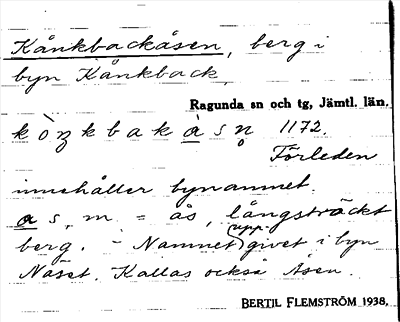 Kånkbackåsen, berg i
byn Kånkback
Ragunda sn och tg, Jämtl. län.
1172.
Förleden
innehåller bynamnet.
a s, m. = ås, långsträckt
berg. - Namnet (upp)givet i byn
Näset. Kallas också Åsen.
BERTIL FLEMSTRÖM 1938.